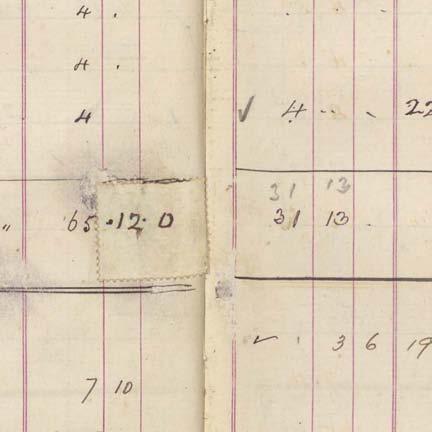 4 .
4 .
4
" 65 . 12 . 0
7 10
✓ 4 .. . 22
31 13
31 13 .
✓ . 3 6 19